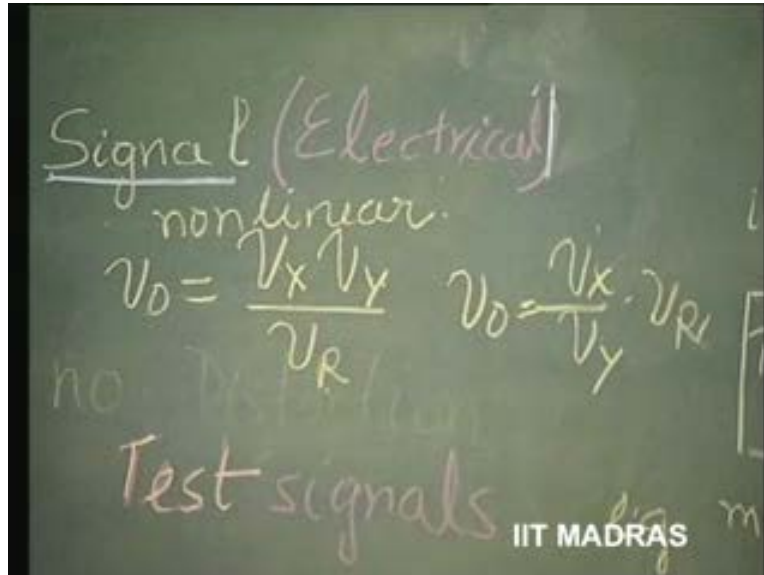 Signal (Electrical)
nonlinear.
v_O = v_X v_Y / v_R    v_O = v_X / v_Y · v_R
no
Test signals
IIT MADRAS